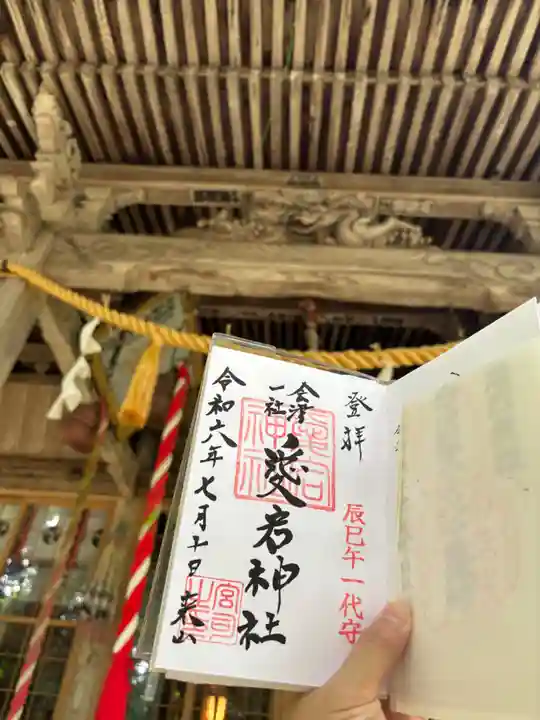 登拝
辰巳午一代守
会津
一社
愛宕神社
令和六年七月十日来山
愛宕
神社